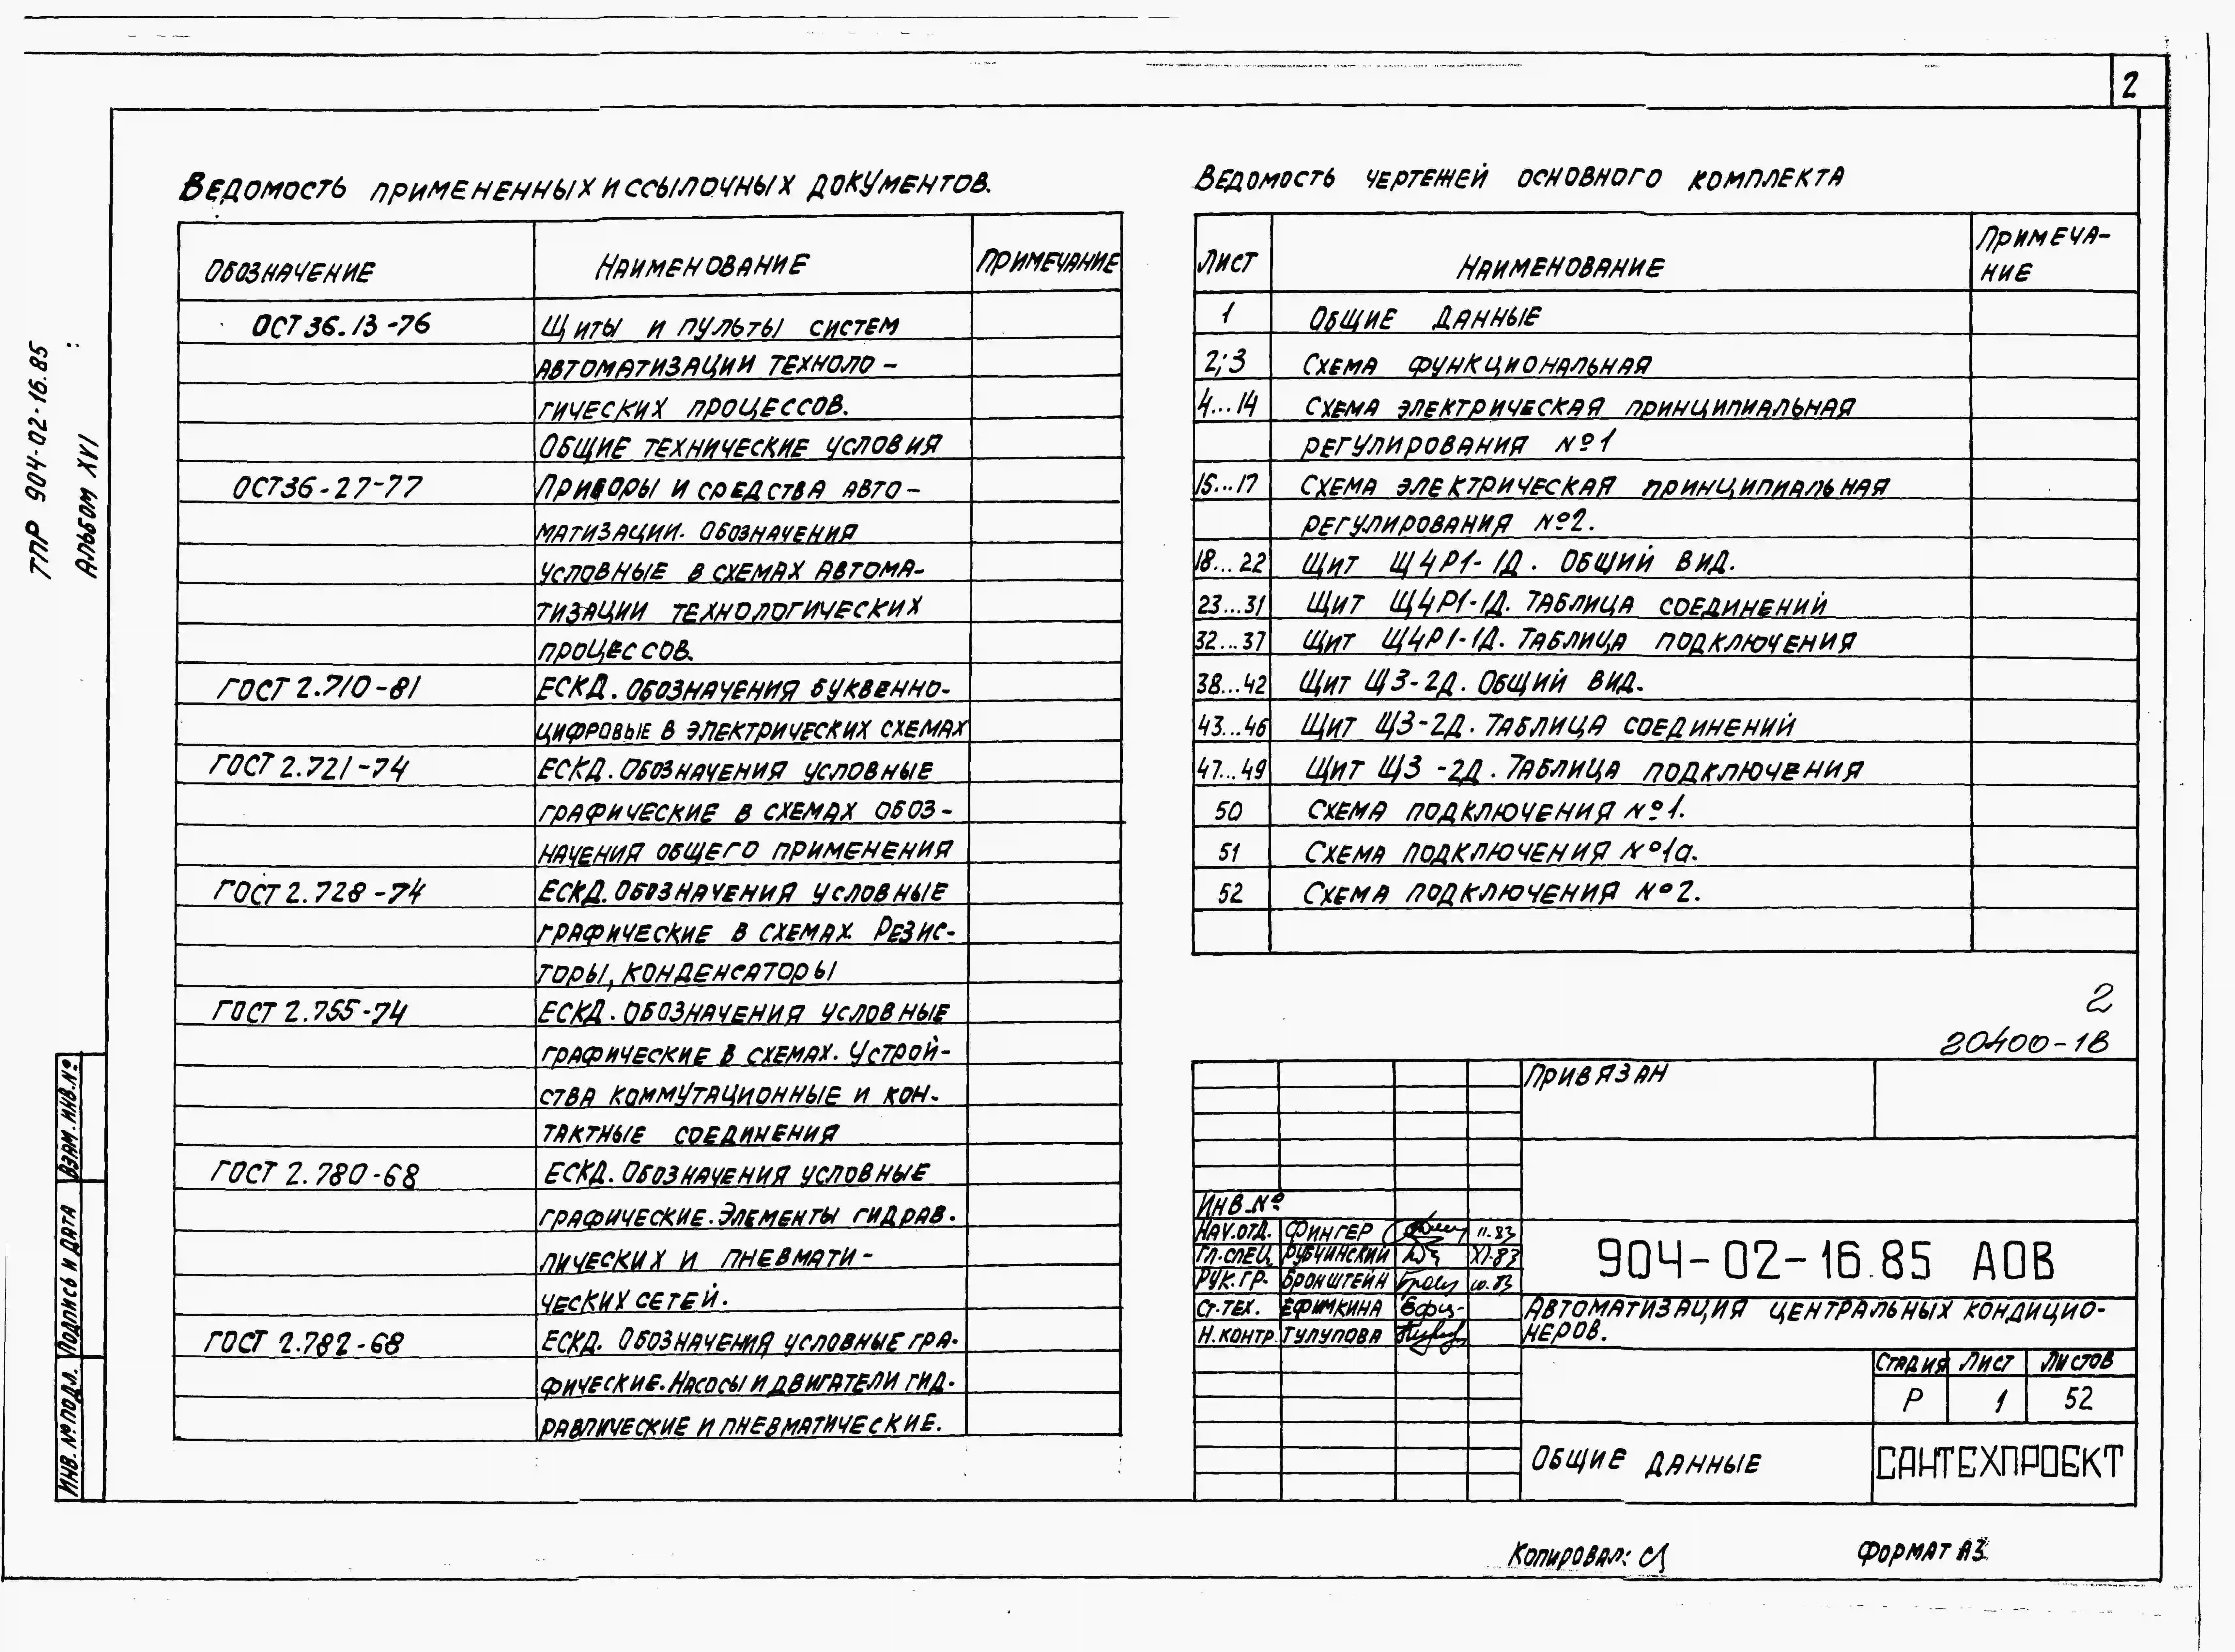 2
ТПР 904-02-16.85
Альбом XVI
Ведомость примененных и ссылочных документов.
Обозначение Наименование Примечание
ОСТ 36.13-76 Щиты и пульты систем
автоматизации техноло-
гических процессов.
Общие технические условия
ОСТ36-27-77 Приборы и средства авто-
матизации. Обозначения
условные в схемах автома-
тизации технологических
процессов.
ГОСТ 2.710-81 ЕСКД. Обозначения буквенно-
цифровые в электрических схемах
ГОСТ 2.721-74 ЕСКД. Обозначения условные
графические в схемах обоз-
начения общего применения
ГОСТ 2.728-74 ЕСКД. Обозначения условные
графические в схемах. Резис-
торы, конденсаторы
ГОСТ 2.755-74 ЕСКД. Обозначения условные
графические в схемах. Устрой-
ства коммутационные и кон-
тактные соединения
ГОСТ 2.780-68 ЕСКД. Обозначения условные
графические. Элементы гидрав.
лических и пневмати-
ческих сетей.
ГОСТ 2.782-68 ЕСКД. Обозначения условные гра-
фические. Насосы и двигатели гид-
равлические и пневматические.
Ведомость чертежей основного комплекта
Лист Наименование Примеча-
ние
1 Общие данные
2; 3 Схема функциональная
4...14 Схема электрическая принципиальная
регулирования №1
15...17 Схема электрическая принципиальная
регулирования №2.
18...22 Щит Щ4Р1-1Д. Общий вид.
23...31 Щит Щ4Р1-1Д. Таблица соединений
32...37 Щит Щ4Р1-1Д. Таблица подключения
38...42 Щит Щ3-2Д. Общий вид.
43...46 Щит Щ3-2Д. Таблица соединений
47...49 Щит Щ3-2Д. Таблица подключения
50 Схема подключения №1.
51 Схема подключения №1а.
52 Схема подключения №2.
2
20400-18
Привязан
Инв.№
Нач.отд. Фингер 11.83
Гл.спец. Рубчинский XI-83
Рук.гр. Бронштейн 10.83
Ст.тех. Ефимкина
Н.контр. Тулупова
904-02-16.85 АОВ
Автоматизация центральных кондицио-
неров.
Стадия Лист Листов
Р 1 52
Общие данные
САНТЕХПРОЕКТ
Взам. инв.№
Подпись и дата
Инв. № подл.
Копировал:
Формат А3